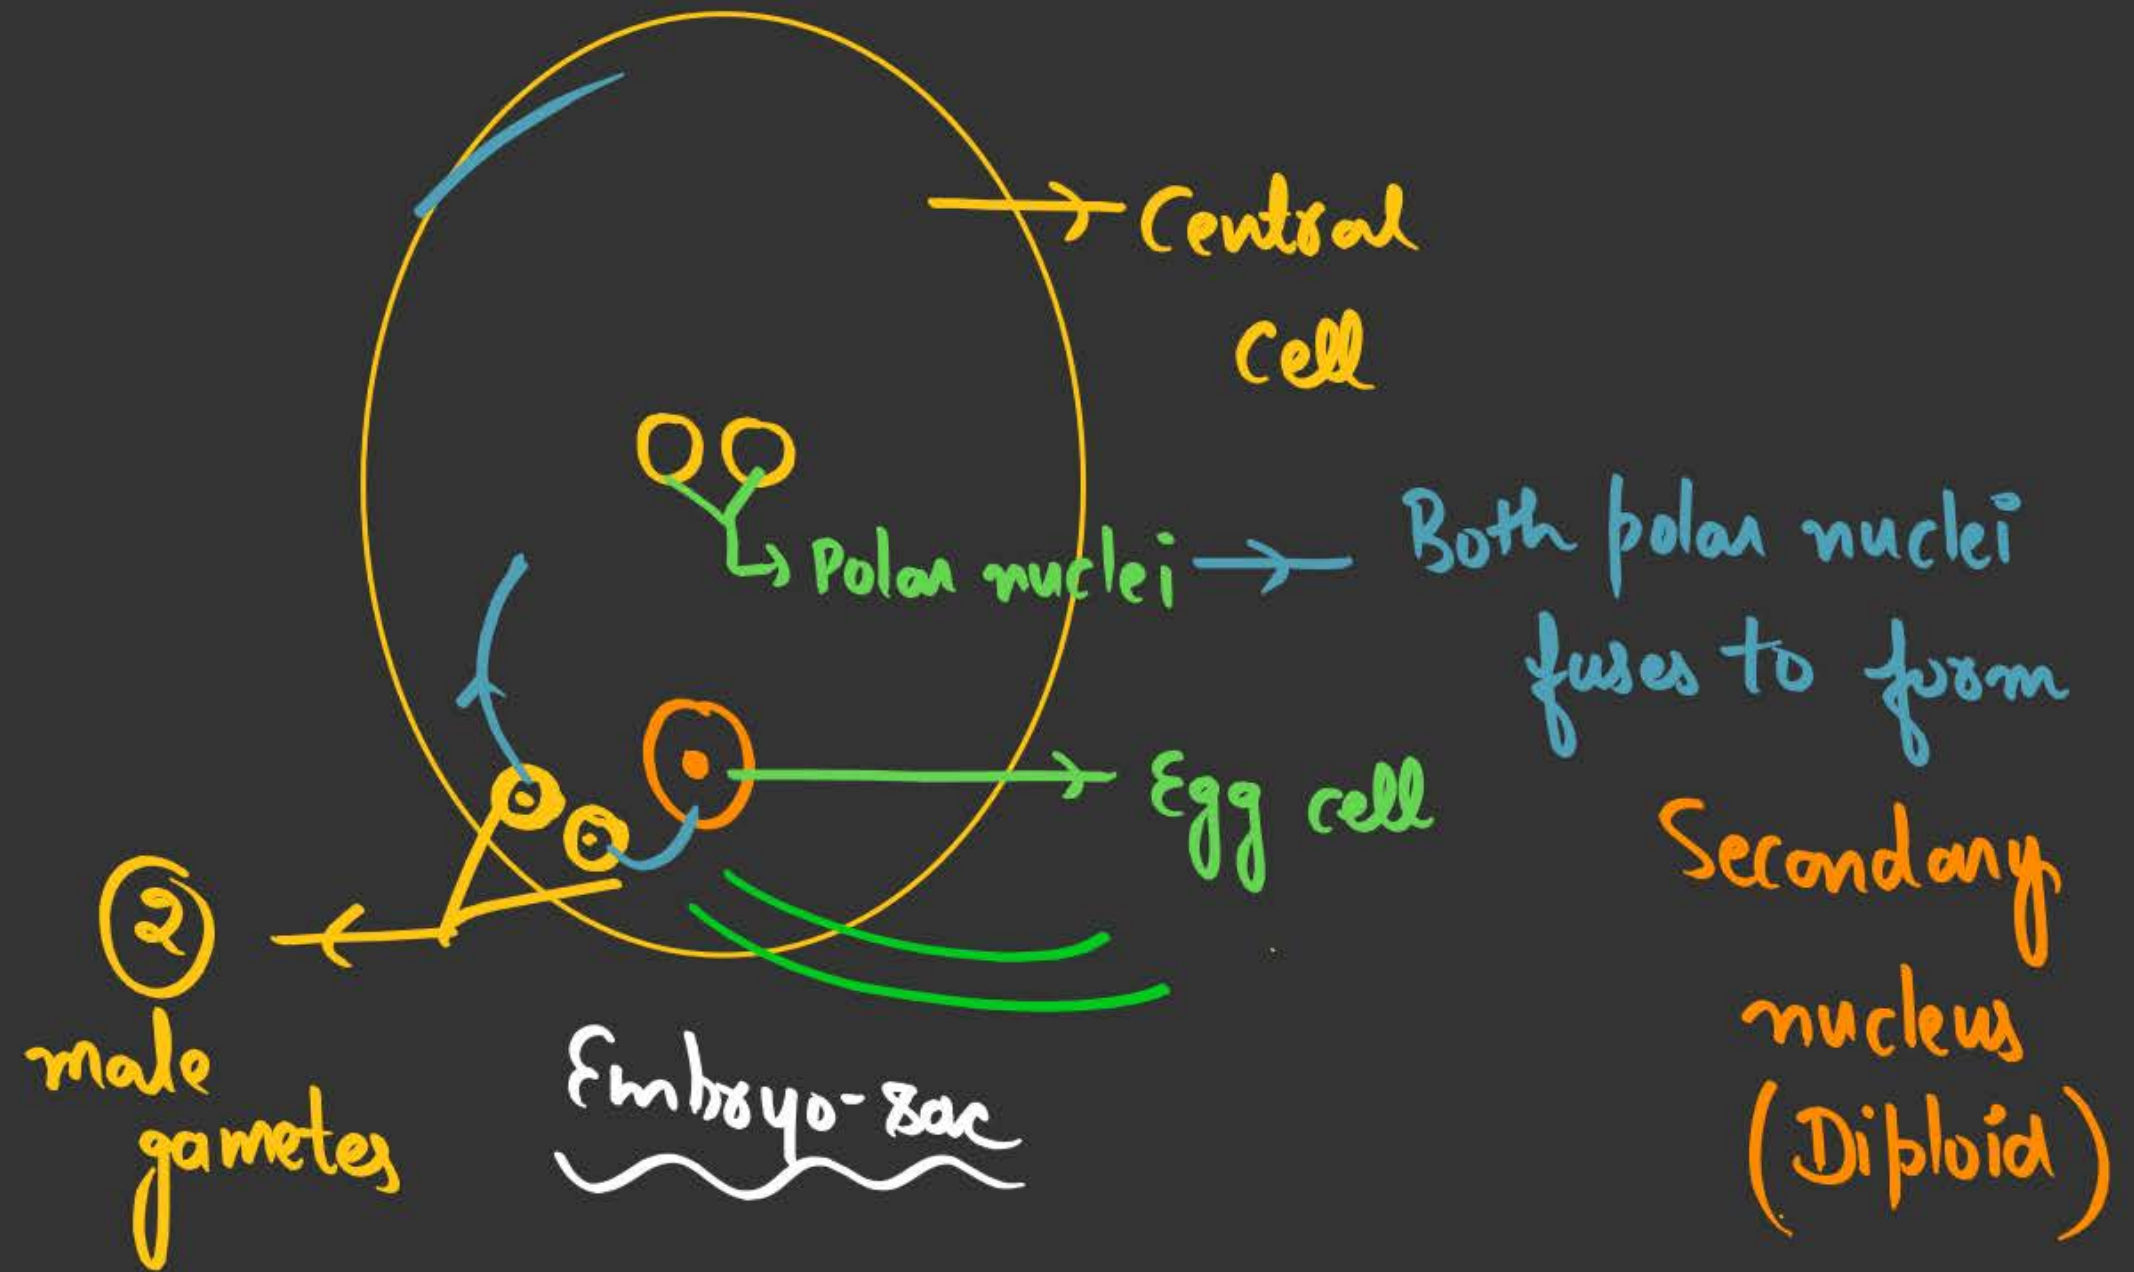 Central
Cell
Polar nuclei
Both polar nuclei
fuses to form
Secondary
nucleus
(Diploid)
Egg cell
2
male
gametes
Embryo-sac